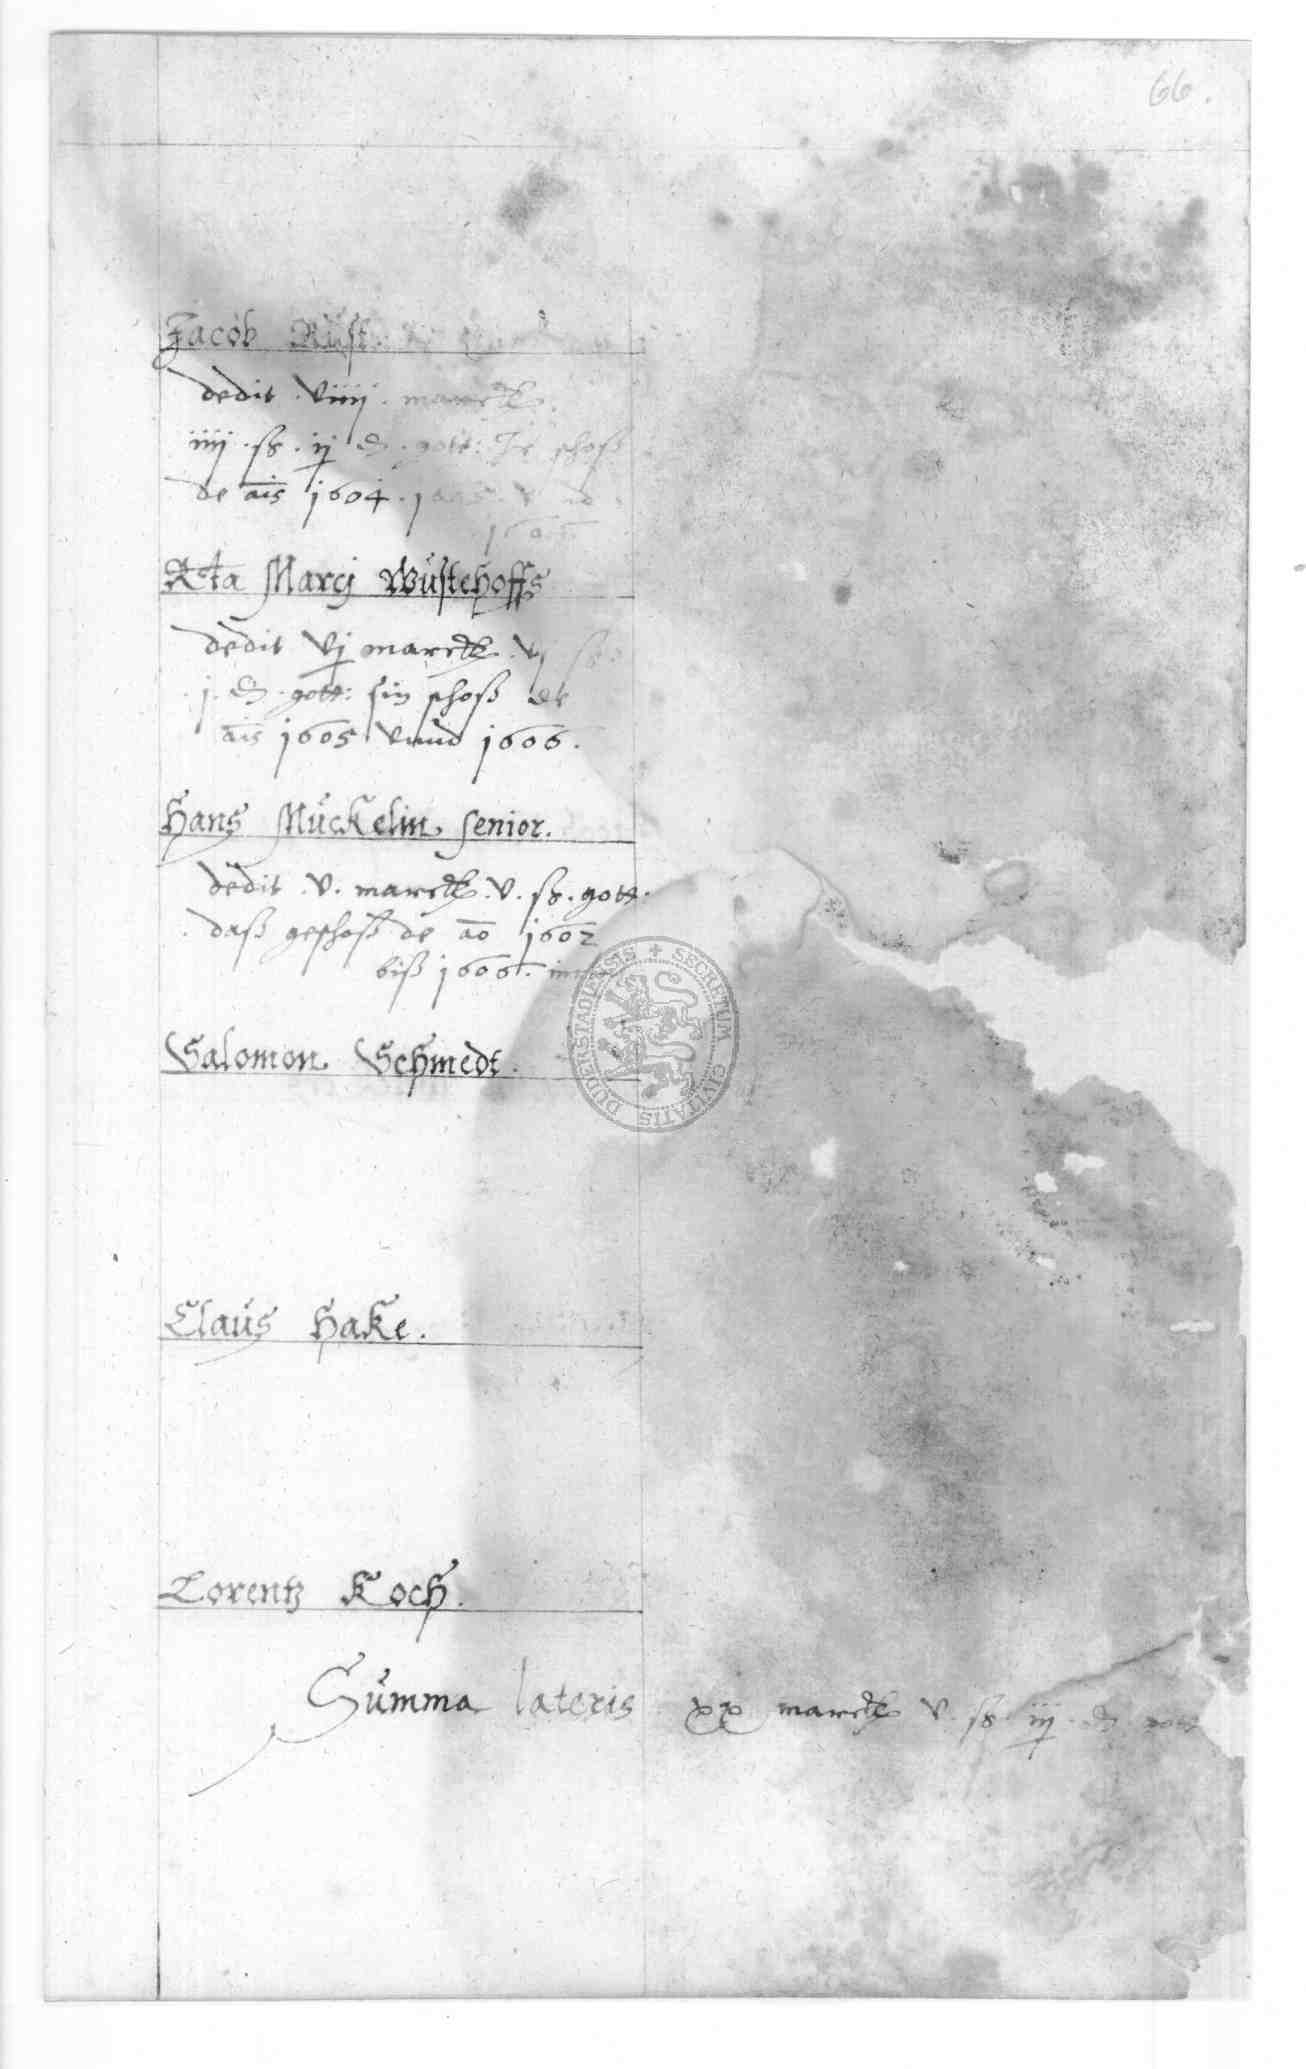 66.
Jacob Rust
dedit . viiij . marck .
iiij . ß . ij ₰ . gott: Jr schoß
de ais 1604 . 1605 . vnd
1606
Rta Marcj Wüstehoffs
dedit vj marck . v ß .
. j . ₰ . gott: sin schoß de
ais 1605 vnnd 1606 .
Hans Mückelin senior.
dedit . v . marck . v . ß . gott.
. daß geschoß de ao 1602
biß 1606 .
SECRETUM CIVITATIS DUDERSTADIENSIS
Salomon Schmedt .
Claus Hake .
Lorentz Koch .
Summa lateris xx marck v . ß iij . ₰ gott